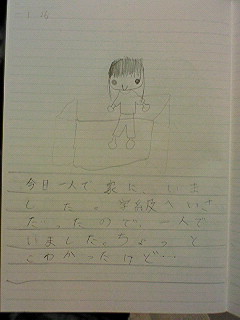 今日一人で家に、いま
した。学級へいき
た、たので、一人で
いました。ちょっと
こわかったけど…